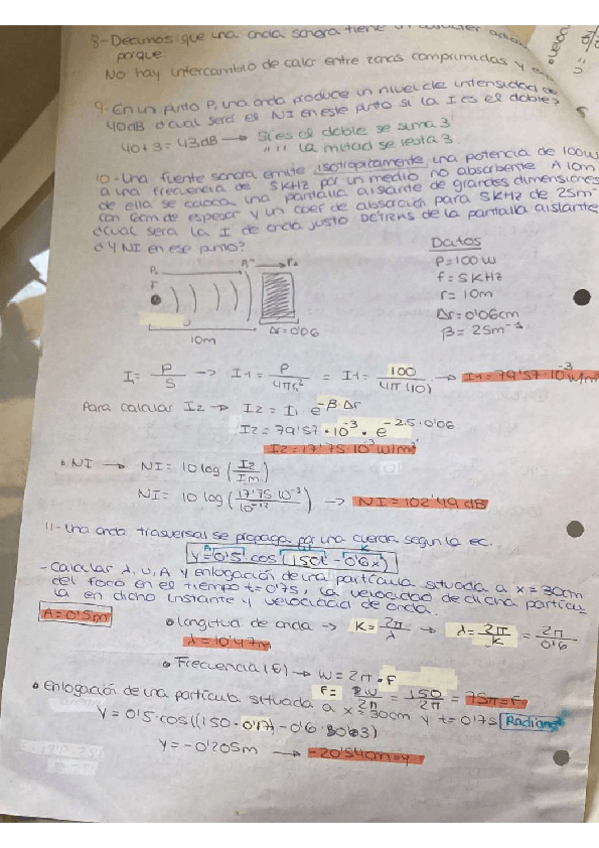 8-Decimos que una onda sonora tiene un
porque:
No hay intercambio de calor entre zonas comprimidas y
9-En un punto P, una onda produce un nivel de intensidad de
40dB ¿cual será el NI en este punto si la I es el doble?
40+3=43dB → Si es el doble se suma 3
" " la mitad se resta 3
10-Una fuente sonora emite isotropicamente una potencia de 100W
a una frecuencia de 5KHz por un medio no absorbente. A 10m
de ella se coloca una pantalla aislante de grandes dimensiones
con 6cm de espesor y un coef de absorción para 5KHz de 25m⁻¹
¿cual será la I de onda justo DETRÁS de la pantalla aislante
d y NI en ese punto?
Datos
P=100W
f=5KHz
r=10m
Δr=0'06cm
β=25m⁻¹
10m
Δr=0'06
I₁= P/S → I1= P/4πr² = I1= 100/4π(10) → I1=79'57·10⁻³W/m²
Para calcular I2 → I2=I₁ e^-β·Δr
I2=79'57·10⁻³·e^-25·0'06
I2=17'75 10⁻³W/m²
• NI → NI=10 log(I2/Im)
NI= 10 log(17'75 10⁻³/10⁻¹²) → NI=102'49 dB
11-Una onda trasversal se propaga por una cuerda segun la ec.
y=0'5·cos(150t-0'6x)
-Calcular λ, U, A y enlogación de una partícula situada a x=30cm
del foco en el tiempo t=0'75, la velocidad de dicha partícu-
la en dicho instante y velocidad de onda.
A=0'5m
• Longitud de onda → K= 2π/λ → λ= 2π/K = 2π/0'6
λ=10'47m
• Frecuencia (f) → W=2π·F
F= W/2π = 150/2π = 75π=F
• Enlogación de una partícula situada a x=30cm y t=0'75 Radianes
y=0'5·cos((150·0'17)-0'6·30'3)
Y=-0'205m → -20'54cm=y